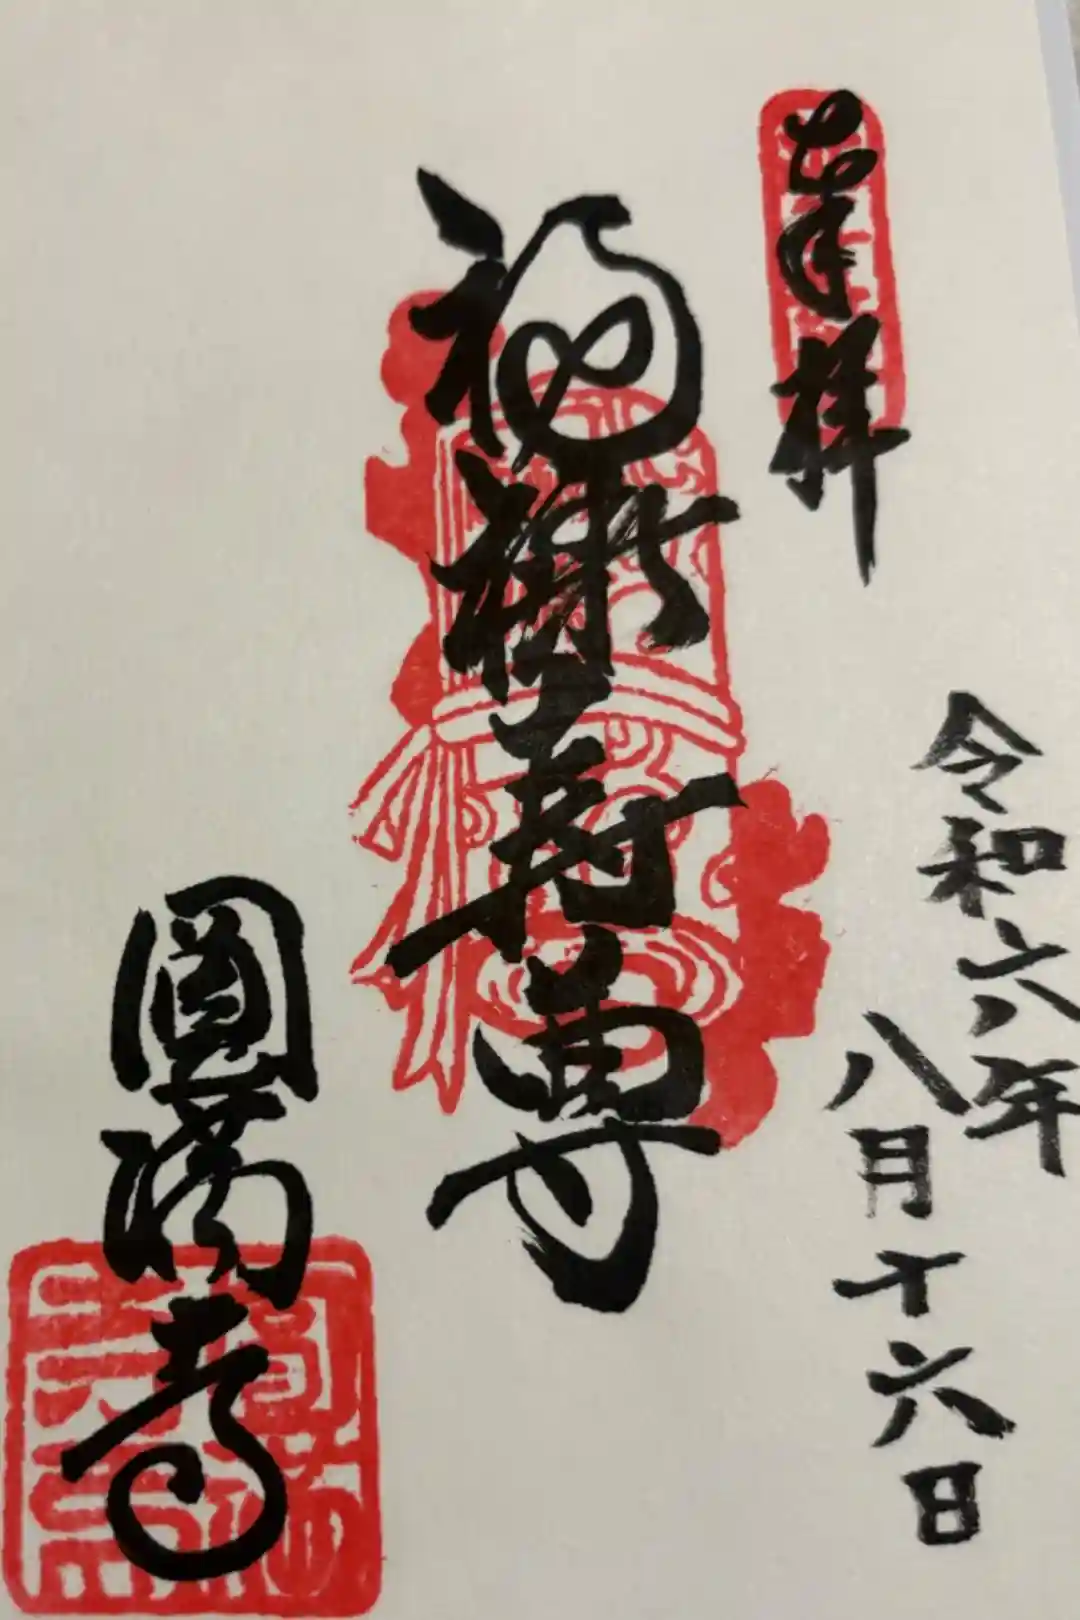 奉拝
令和六年
八月十六日
福禄寿尊
圓満寺